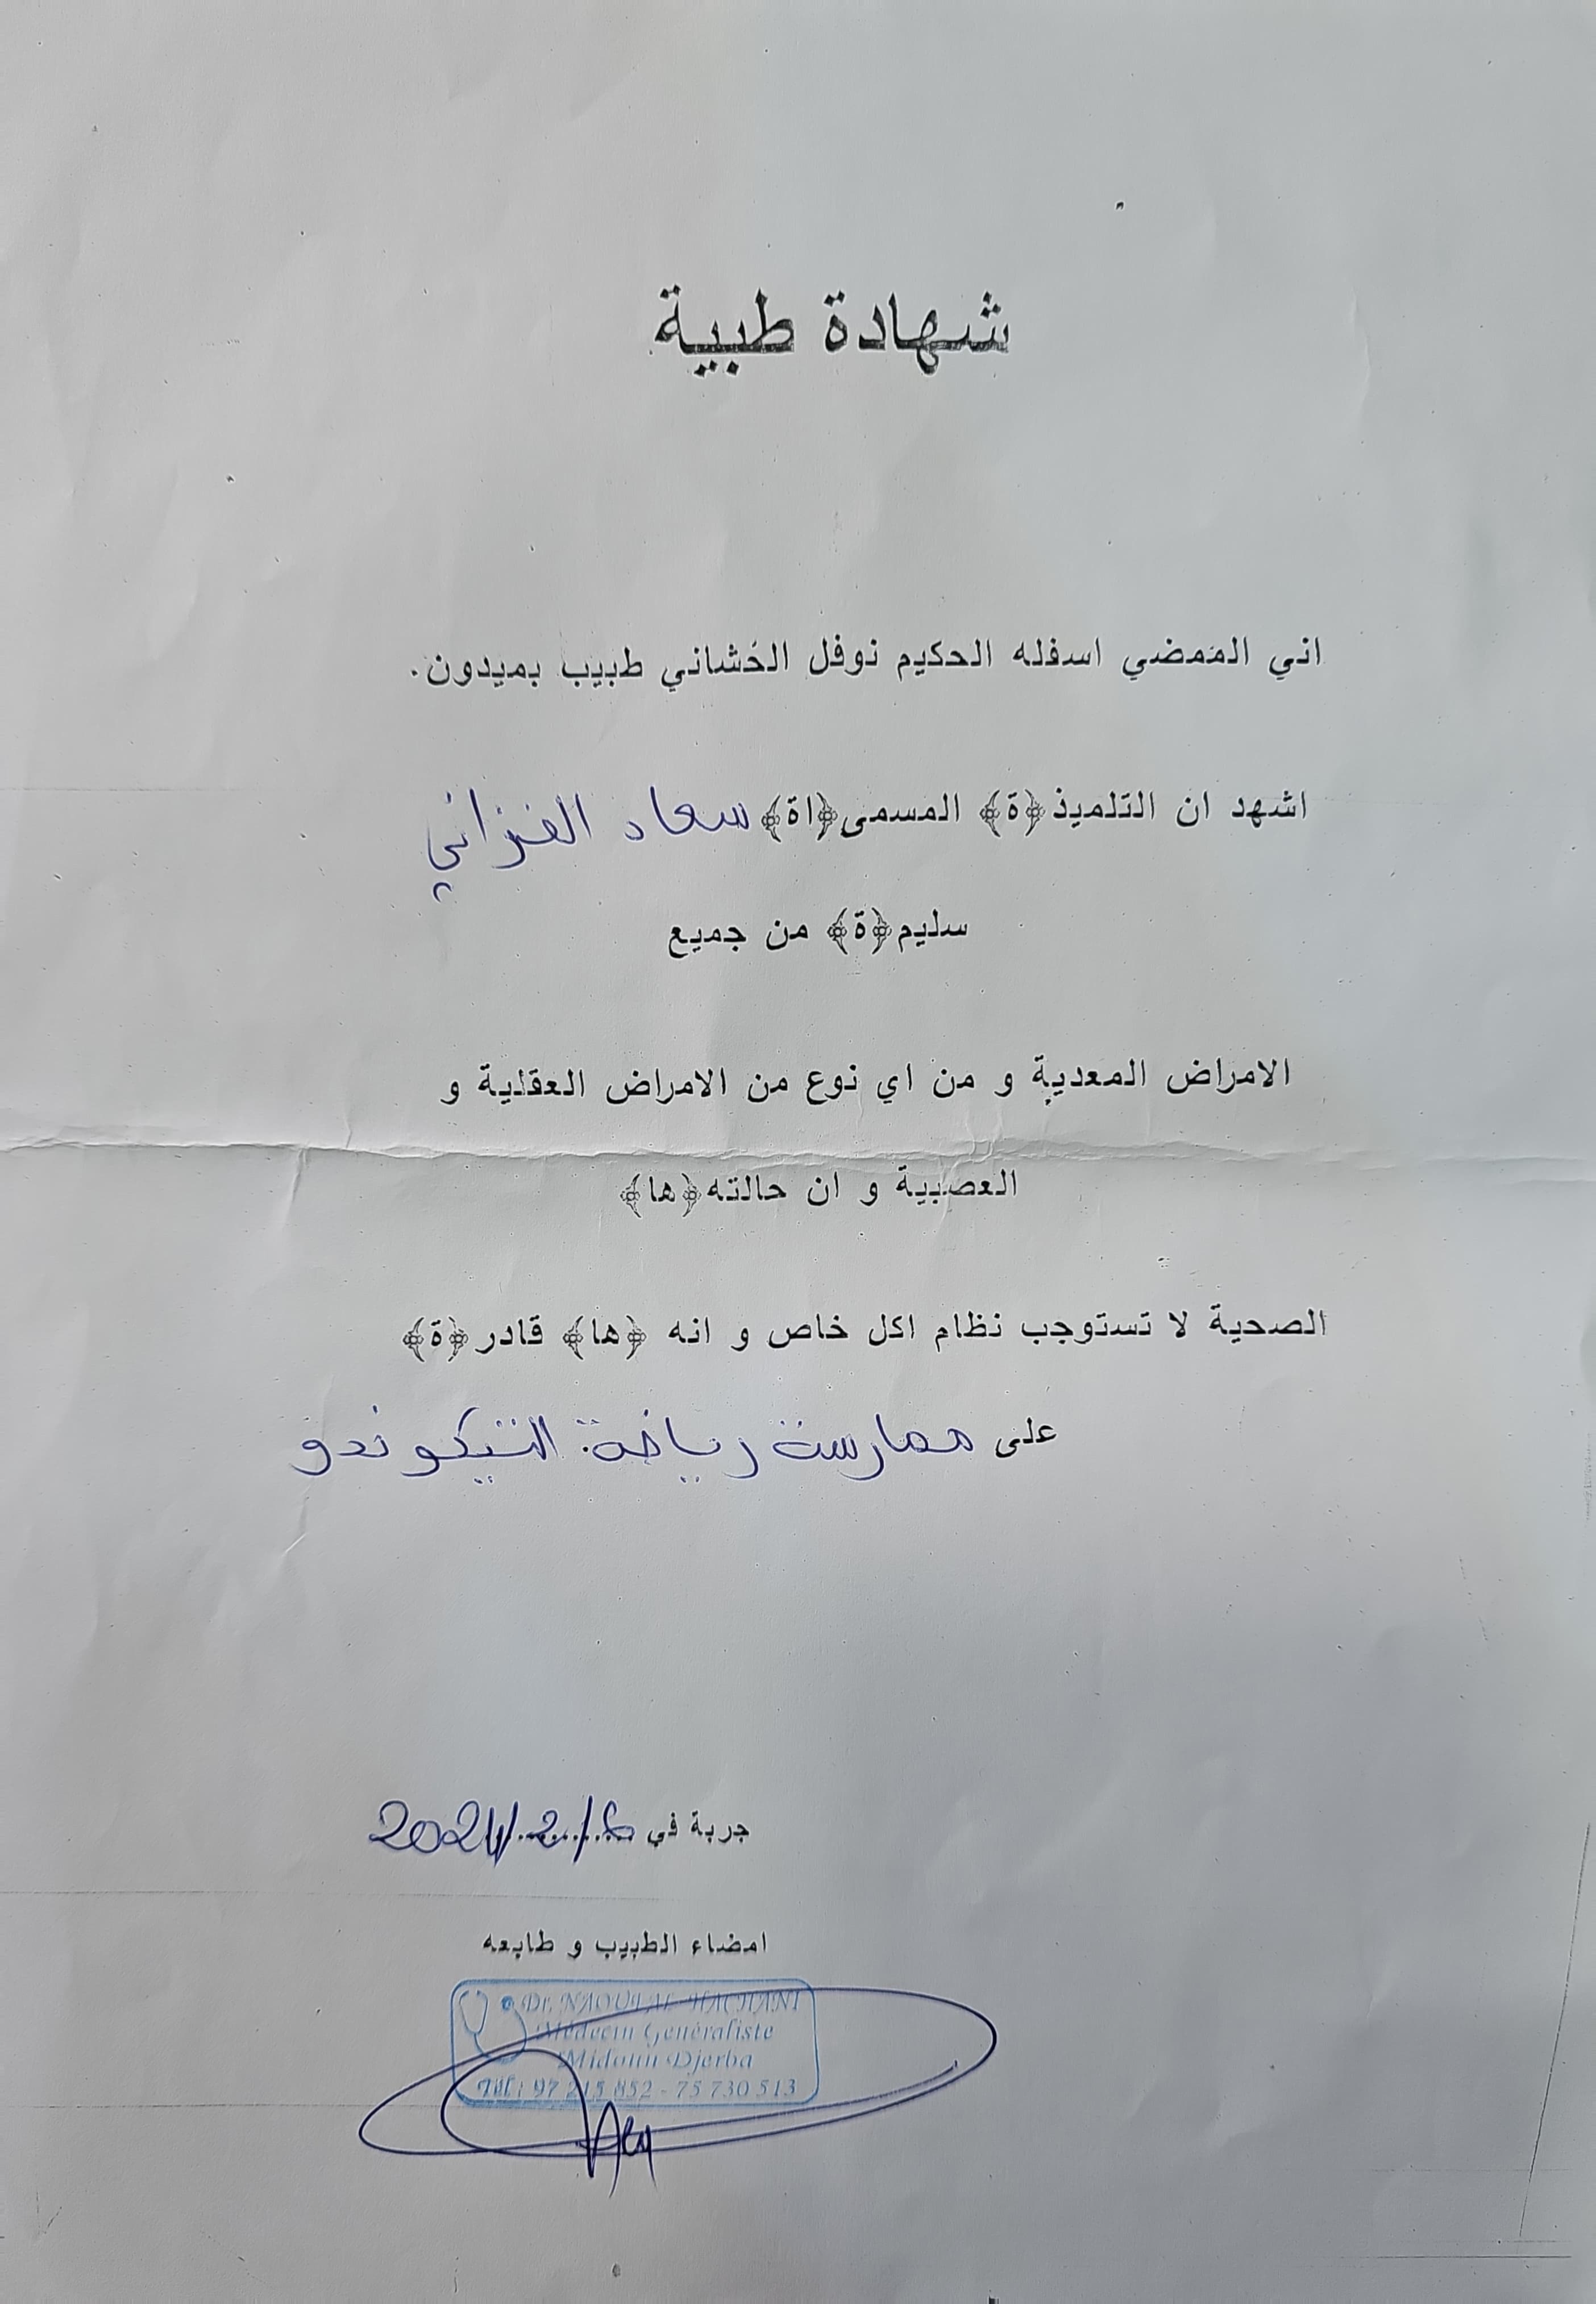 شهادة طبية
اني الممضي اسفله الحكيم نوفل الحشاني طبيب بميدون.
اشهد ان التلميذ﴿ة﴾ المسمى﴿اة﴾ سعاد الفزاني
سليم﴿ة﴾ من جميع
الامراض المعدية و من اي نوع من الامراض العقلية و
العصبية و ان حالته﴿ها﴾
الصحية لا تستوجب نظام اكل خاص و انه ﴿ها﴾ قادر﴿ة﴾
على ممارسة رياضة التيكوندو
جربة في
امضاء الطبيب و طابعه
Dr. NAOUFAL HACHANI
Médecin Généraliste
Midoun Djerba
Tél : 97 215 852 - 75 730 513